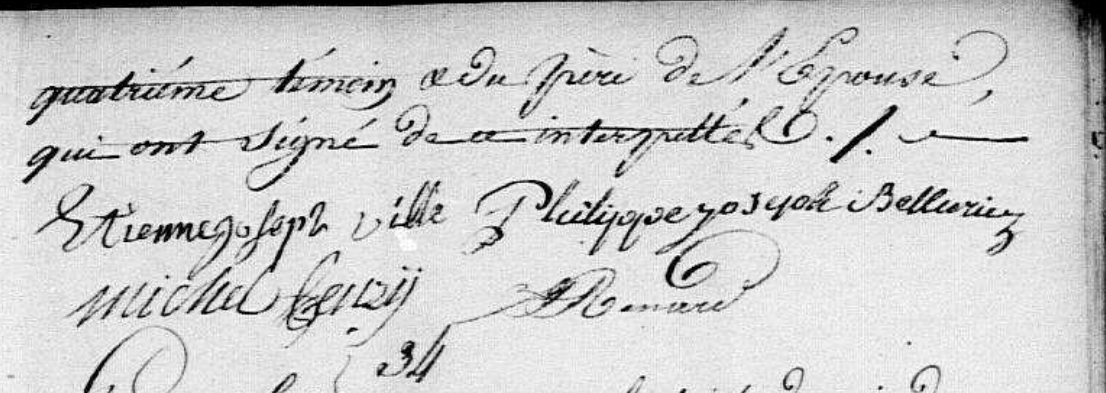 quatriéme témoin & du père de l'Epouse,
qui ont signé de ce interpellés ./.
Etienne joseph ville Philippe joseph
michel Renard
34